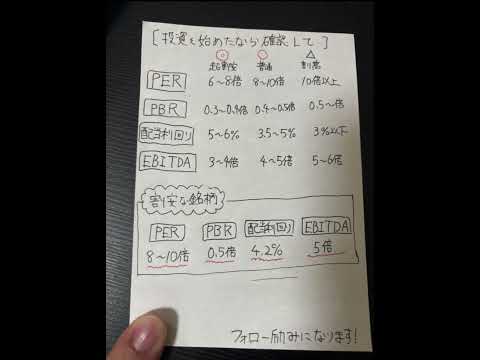 [投資を始めたなら確認して]
◎ ○ △
超割安 普通 割高
PER 6〜8倍 8〜10倍 10倍以上
PBR 0.3〜0.4倍 0.4〜0.5倍 0.5〜倍
配当利回り 5〜6% 3.5〜5% 3%以下
EBITDA 3〜4倍 4〜5倍 5〜6倍
割安な銘柄
PER PBR 配当利回り EBITDA
8〜10倍 0.5倍 4.2% 5倍
フォロー励みになります!